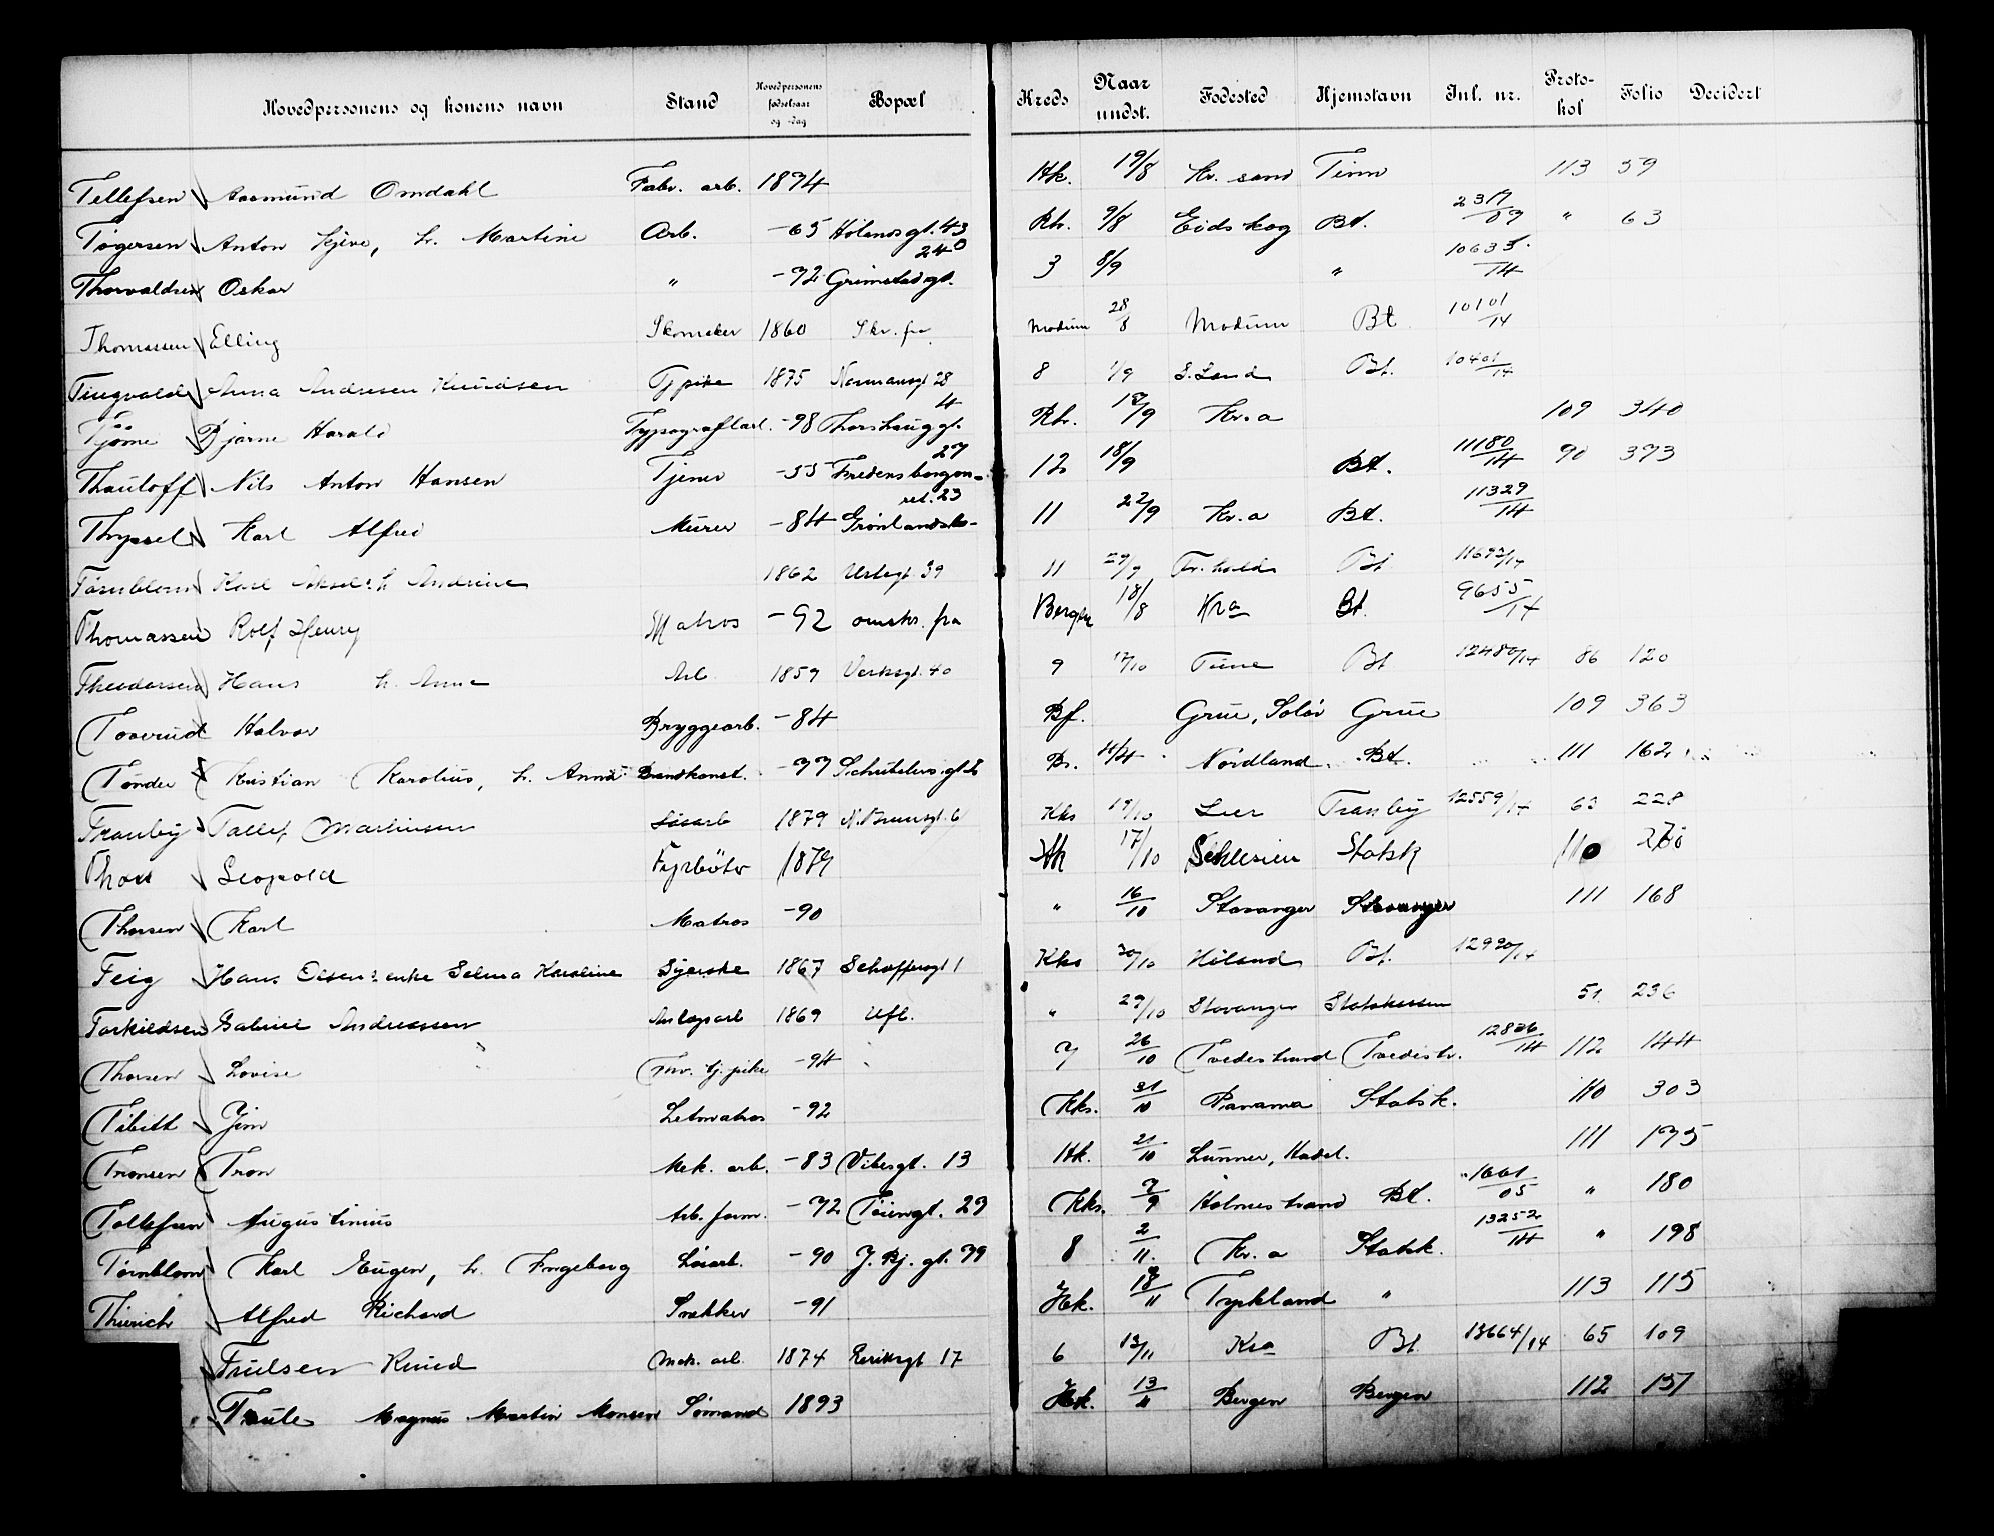 Hovedpersonens og konens navn Stand Hovedpersonens fødselsaar og -dag Bopæl Kreds Naar undst. Fødested Hjemstavn Inl. nr. Proto-kol Folio Decidert
Tellefsen Aasmund Omdahl Fabr. arb. 1874 Hk. 19/8 Kr. sand Tinn 113 59
Tøgersen Anton Skjeve, h. Martine Arb. -65 Holmsgt. 43 Rh. 9/8 Eidskog Bt. 2317/09 " 63
Thorvaldsen Oskar " -72 Grimstadgt. 24 3 8/9 " 10635/14
Thomassen Elling Skomaker 1860 Skr. fra Modum 28/8 Modum Bt. 10101/14
Tingvold Anna Andresen Knudsen Tj pike 1875 Normansgt 28 8 1/9 S. Land Bt. 10401/14
Tjøme Bjarne Harald Typograflærl. -98 Thorshauggt. 4 Rh. 17/9 Kr.a 109 340
Thauloff Nils Anton Hansen Tjener -55 Fredensborgvn. 27 12 18/9 Bt. 11180/14 90 373
Thyssel Karl Alfred Murer -84 Grønlandsleret. 23 11 22/9 Kr.a Bt. 11329/14
Tørnblom Karl Aksel h. Andrine 1862 Urtegt. 39 11 29/9 Fr. hald Bt 11693/14
Thomassen Rolf Henry Matros -92 omskr. fra Bergen 18/8 Kra Bt. 9655/14
Theodorsen Hans h. Anna Arb. 1859 Verksgt. 40 9 17/10 Tune Bt 12480/14 86 120
Toverud Halvor Bryggearb. -84 Bf. Grue, Solør Grue 109 363
Tønder Kristian Karolius, h. Anna Brandkonst. -77 Schübelersgt. 2 Br. 4/4 Nordland Bt. 111 162
Tranby Tollef Martinsen Løsarb 1879 N. Brunsgt. 6 Kks 19/10 Lier Tranby 12559/14 63 228
Leopold Fyrbøter 1879 Hk 17/10 Schlesien Statsk 110
Thorsen Karl Matros -90 " 16/10 Stavanger Stavanger 111 168
Teig Hans Olsens enke Selma Karoline Syerske 1867 Schafftersgt 1 Kks 30/10 Høland Bt. 12930/14
Torkildsen Gabriel Andreassen Anlægsarb 1869 Ufl. " 29/10 Stavanger Statskassen 51 236
Thorsen Lovise Fhv. tj. pike -94 7 26/10 Tvedestrand Tvedestr. 12836/14 112 144
Tibitt Jim Letmatros -92 Kks. 31/10 Panama Statsk. 110 303
Tronsen Tron Mek. arb. -83 Vibesgt. 13 Hk. 21/10 Lunner, Hadel. 111 175
Tollefsen Augustinius Arb. form. -72 Tøiengt. 29 Kks. 7/9 Holmestrand Bt. 1601/05 " 180
Tørnblom Karl Eugen, h. Ingeborg Løsarb. -90 J. Bj. gt. 79 8 2/11 Kr. a Statsk. 13252/14 " 198
Thierich Alfred Richard Snekker -91 Hk. 18/11 Tyskland " 113 115
Trulsen Knud Mek. arb. 1874 Eeriksgt 17 6 13/11 Kra Bt. 13664/14 65 109
Taule Magnus Martin Monsen Sømand 1893 Hk. 13/11 Bergen Bergen 112 151